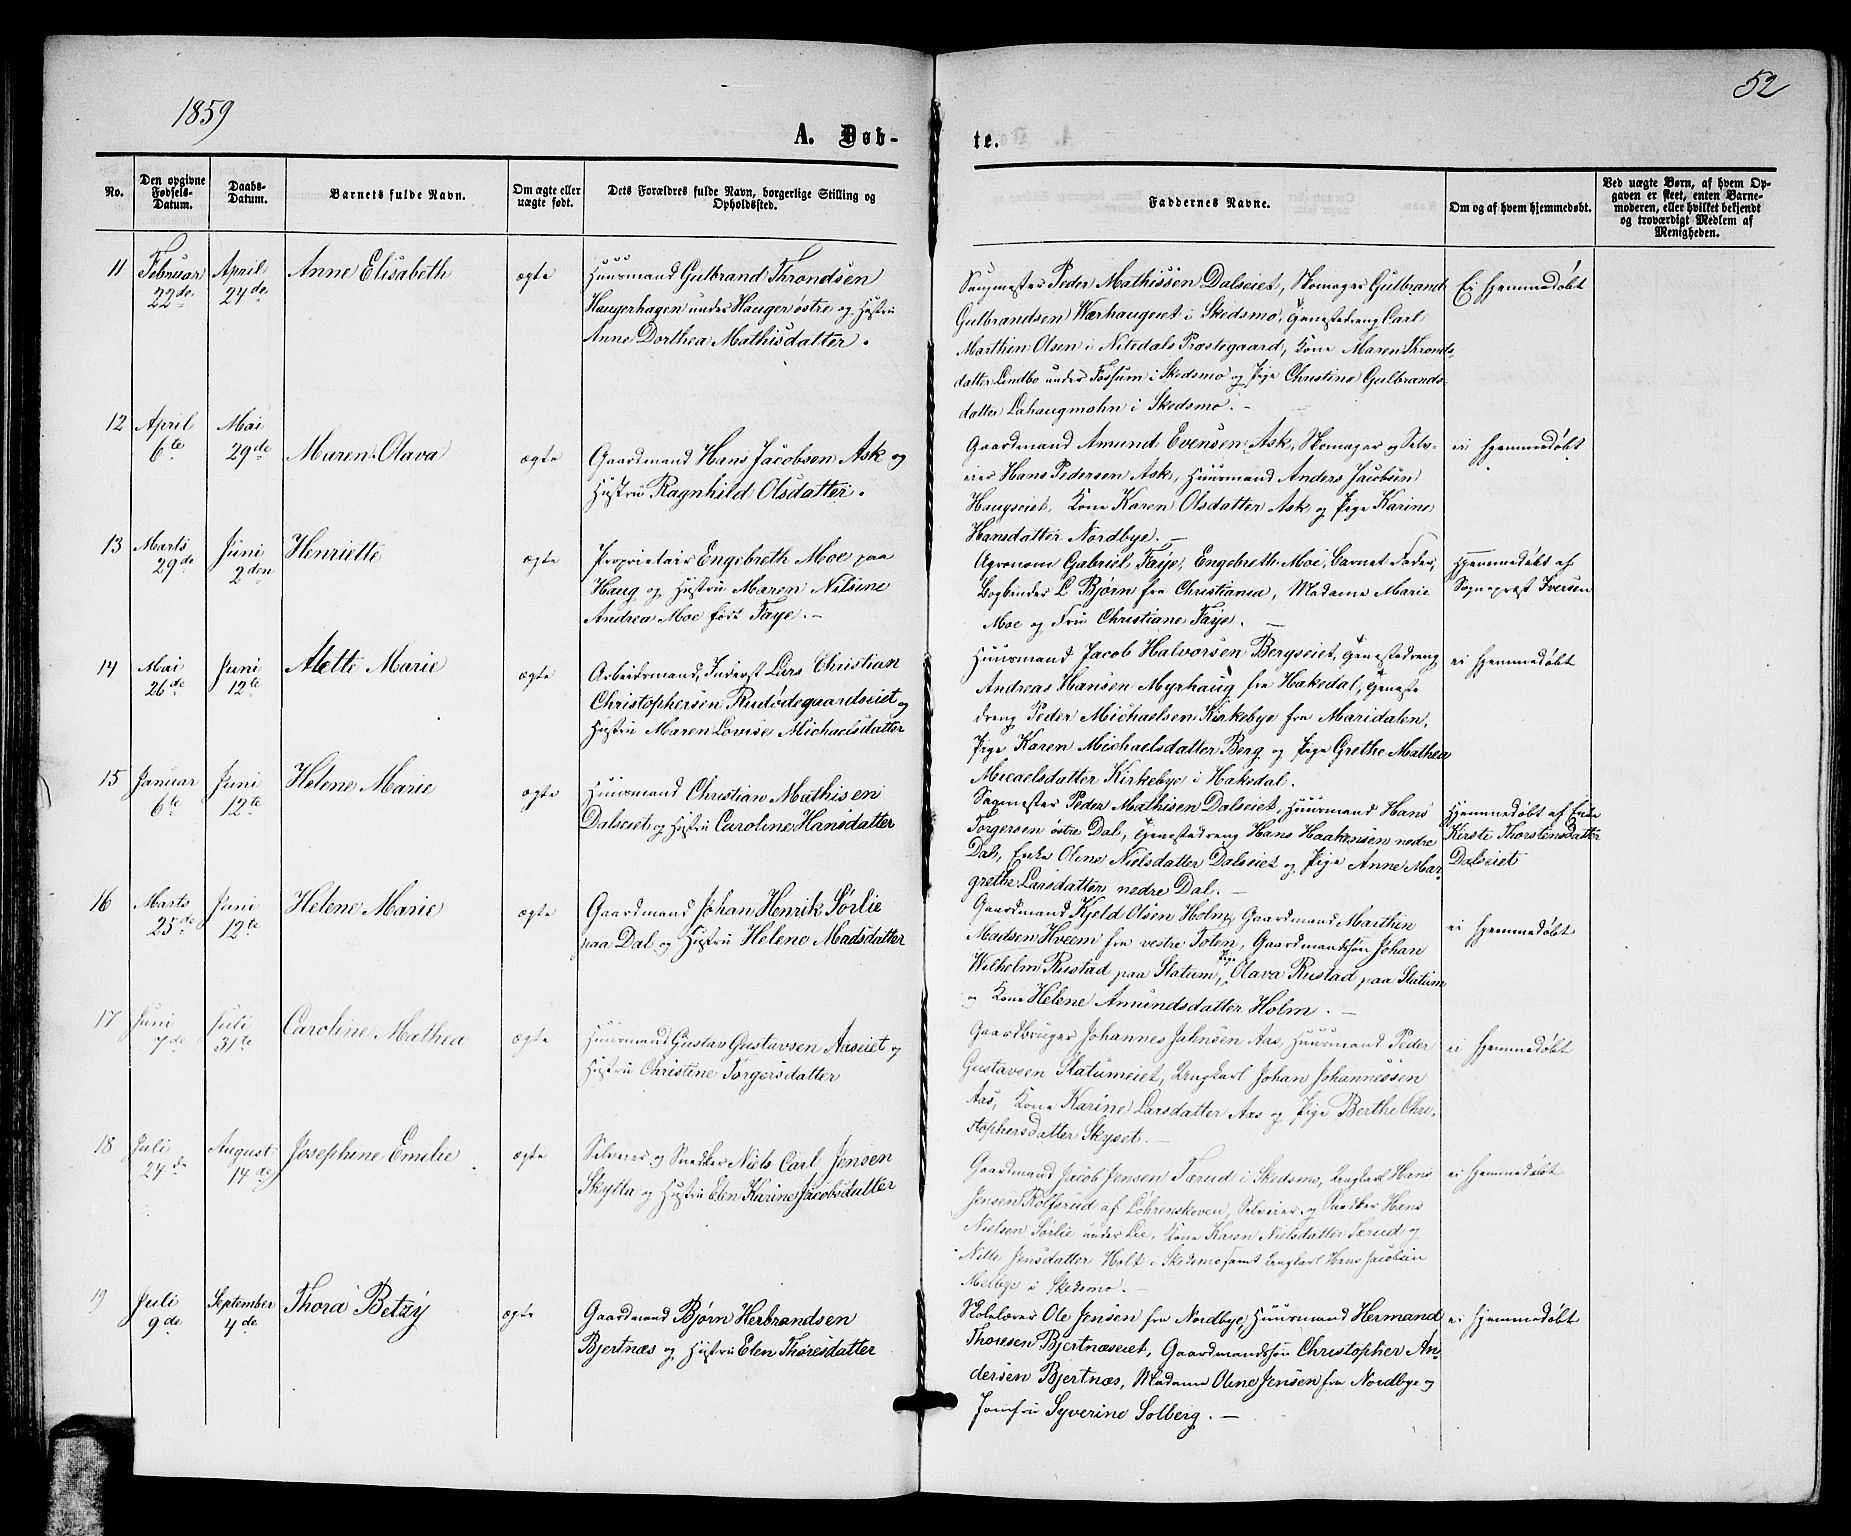 1859
52
A. Døb-
te.
No.
Den opgivne
Fødsels-
Datum.
Daabs-
Datum.
Barnets fulde Navn.
Om ægte eller
uægte født.
Dets Forældres fulde Navn, borgerlige Stilling og
Opholdssted.
Faddernes Navne.
Om og af hvem hjemmedøbt.
Ved uægte Børn, af hvem Op-
gaven er skeet, enten Barne-
moderen, eller hvilket bekjendt
og troværdigt Medlem af
Menigheden.
11
Februar
22de
April
24de
Anne Elisabeth
ægte
Huusmand Gulbrand Throndsen
Haugerhagen under Hauger østre og Hustru
Anne Dorthea Mathisdatter.
Saugmester Peder Mathissen Dalseiet, Skomager Gulbrand
Gulbrandsen Wærhaugeiet i Skedsmo, Gjenestedreng Carl
Marthin Olsen i Nitedals Præstegaard, Kone Maren Thronds-
datter Lindbo under Fossum i Skedsmo og Pige Christine Gulbrands-
datter Lahaugmohn i Skedsmo. —
Ei hjemmedøbt
12
April
6te
Mai
29de
Maren Olava
ægte
Gaardmand Hans Jacobsen Ask og
Hustru Ragnhild Olsdatter.
Gaardmand Amund Evensen Ask, Skomager og Selv-
eier Hans Pedersen Ask, Huusmand Anders Jacobsen
Haugseiet, Kone Karen Olsdatter Ask og Pige Karine
Hansdatter Nordbye. —
ei hjemmedøbt
13
Marts
29de
Juni
2den
Henriette
ægte
Proprietair Engebreth Moe paa
Haug og Hustru Maren Nilsine
Andrea Moe født Faye. —
Agronom Gabriel Faye, Engebreth Moe, Barnet Fader,
Bogbinder L Bjørn fra Christiania, Madame Marie
Moe og Fru Christiane Faye. —
Hjemmedøbt af
Sogneprest Iversen
14
Mai
26de
Juni
12te
Alette Marie
ægte
Arbeidsmand, Inderst Lars Christian
Christophersen Rudødegaardseiet og
Hustru Maren Lovise Michaelsdatter
Huusmand Jacob Halvorsen Bergseiet, Gjenestedreng
Andreas Hansen Myrhaug fra Hakedal, Gjeneste
dreng Peder Michaelsen Kirkebye fra Maridalen,
Pige Karen Michaelsdatter Berg og Pige Grethe Mathea
Micaelsdatter Kirkebye i Hakedal.
ei hjemmedøbt
15
Januar
6te
Juni
12te
Helene Marie
ægte
Huusmand Christian Mathisen
Dalseiet og Hustru Caroline Hansdatter
Sagmester Peder Mathisen Dalseiet, Huusmand Hans
Torgersen østre Dal, Gjenestedreng Hans Haakensen nedre
Dal, Enke Oline Nielsdatter Dalseiet og Pige Anne Mar-
grethe Larsdatter nedre Dal. —
Hjemmedøbt af Enke
Kirsti Thorstensdatter
Dalseiet
16
Marts
25de
Juni
12te
Helene Marie
ægte
Gaardmand Johan Henrik Sørlie
paa Dal og Hustru Helene Madsdatter
Gaardmand Kjeld Olsen Holm, Gaardmand Marthin
Madsen Hveem fra vestre Toten, Gaardmandssøn Johan
Wilhelm Rustad paa Slatum, Pige Olava Rustad paa Slatum
og Kone Helene Amundsdatter Holm. —
ei hjemmedøbt
17
Juni
7de
Juli
31te
Caroline Mathea
ægte
Huusmand Gustav Gustavsen Aaseiet og
Hustru Christine Torgersdatter
Gaardbruger Johannes Jahnsen Aas, Huusmand Peder
Gustavsen Slatumeiet, Ungkarl Johan Johannessen
Aas, Kone Karine Larsdatter Aas og Pige Berthe Chri-
stophersdatter Skyset. —
ei hjemmedøbt
18
Juli
24de
August
14de
Josephine Emilie
ægte
Selveier og Snedker Niels Carl Jensen
Skytta og Hustru Elen Karine Jacobsdatter
Gaardmand Jacob Jensen Tærud i Skedsmo, Ungkarl Hans
Jensen Rolfsrud af Løhrenskoven, Selveier og Snedker Hans
Nielsen Sørlie under Lie, Kone Karen Nielsdatter Tærud og
Nille Jensdatter Holt i Skedsmo samt Ungkarl Hans Jacobsen
Melbye i Skedsmo. —
ei hjemmedøbt
19
Juli
9de
September
4de
Thora Betzy
ægte
Gaardmand Bjørn Herbrandsen
Bjertnæs og Hustru Elen Thoresdatter
Skolelærer Ole Jensen fra Nordbye, Huusmand Hermand
Thoresen Bjertnæseiet, Gaardmandssøn Christopher An-
dersen Bjertnæs, Madame Oline Jensen fra Nordbye og
Jomfru Syverine Solberg. —
ei hjemmedøbt